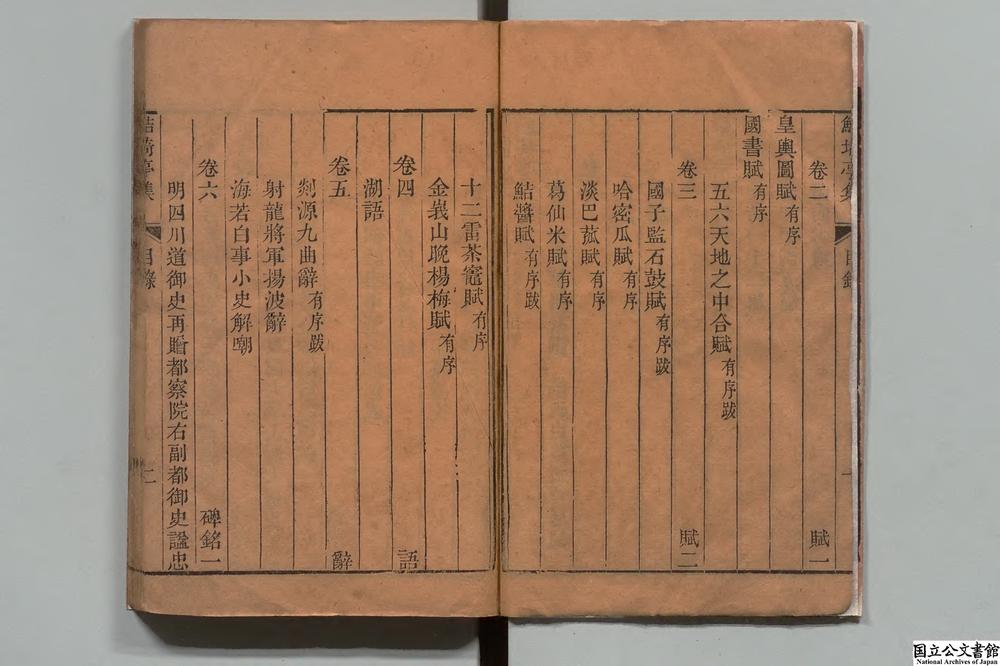 鮚埼亭集 目錄 一
卷二 賦一
皇輿圖賦有序
國書賦有序
五六天地之中合賦有序跋
卷三 賦二
國子監石鼓賦有序跋
哈密瓜賦有序
淡巴菰賦有序
葛仙米賦有序
鮚醬賦有序跋
十二雷茶竈賦有序
金峩山晚楊梅賦有序
卷四 語
湖語
卷五 辭
剡源九曲辭有序跋
射龍將軍揚波辭
海若白事小史解嘲
卷六 碑銘一
明四川道御史再贈都察院右副都御史諡忠
鮚埼亭集 目錄 二
国立公文書館
National Archives of Japan